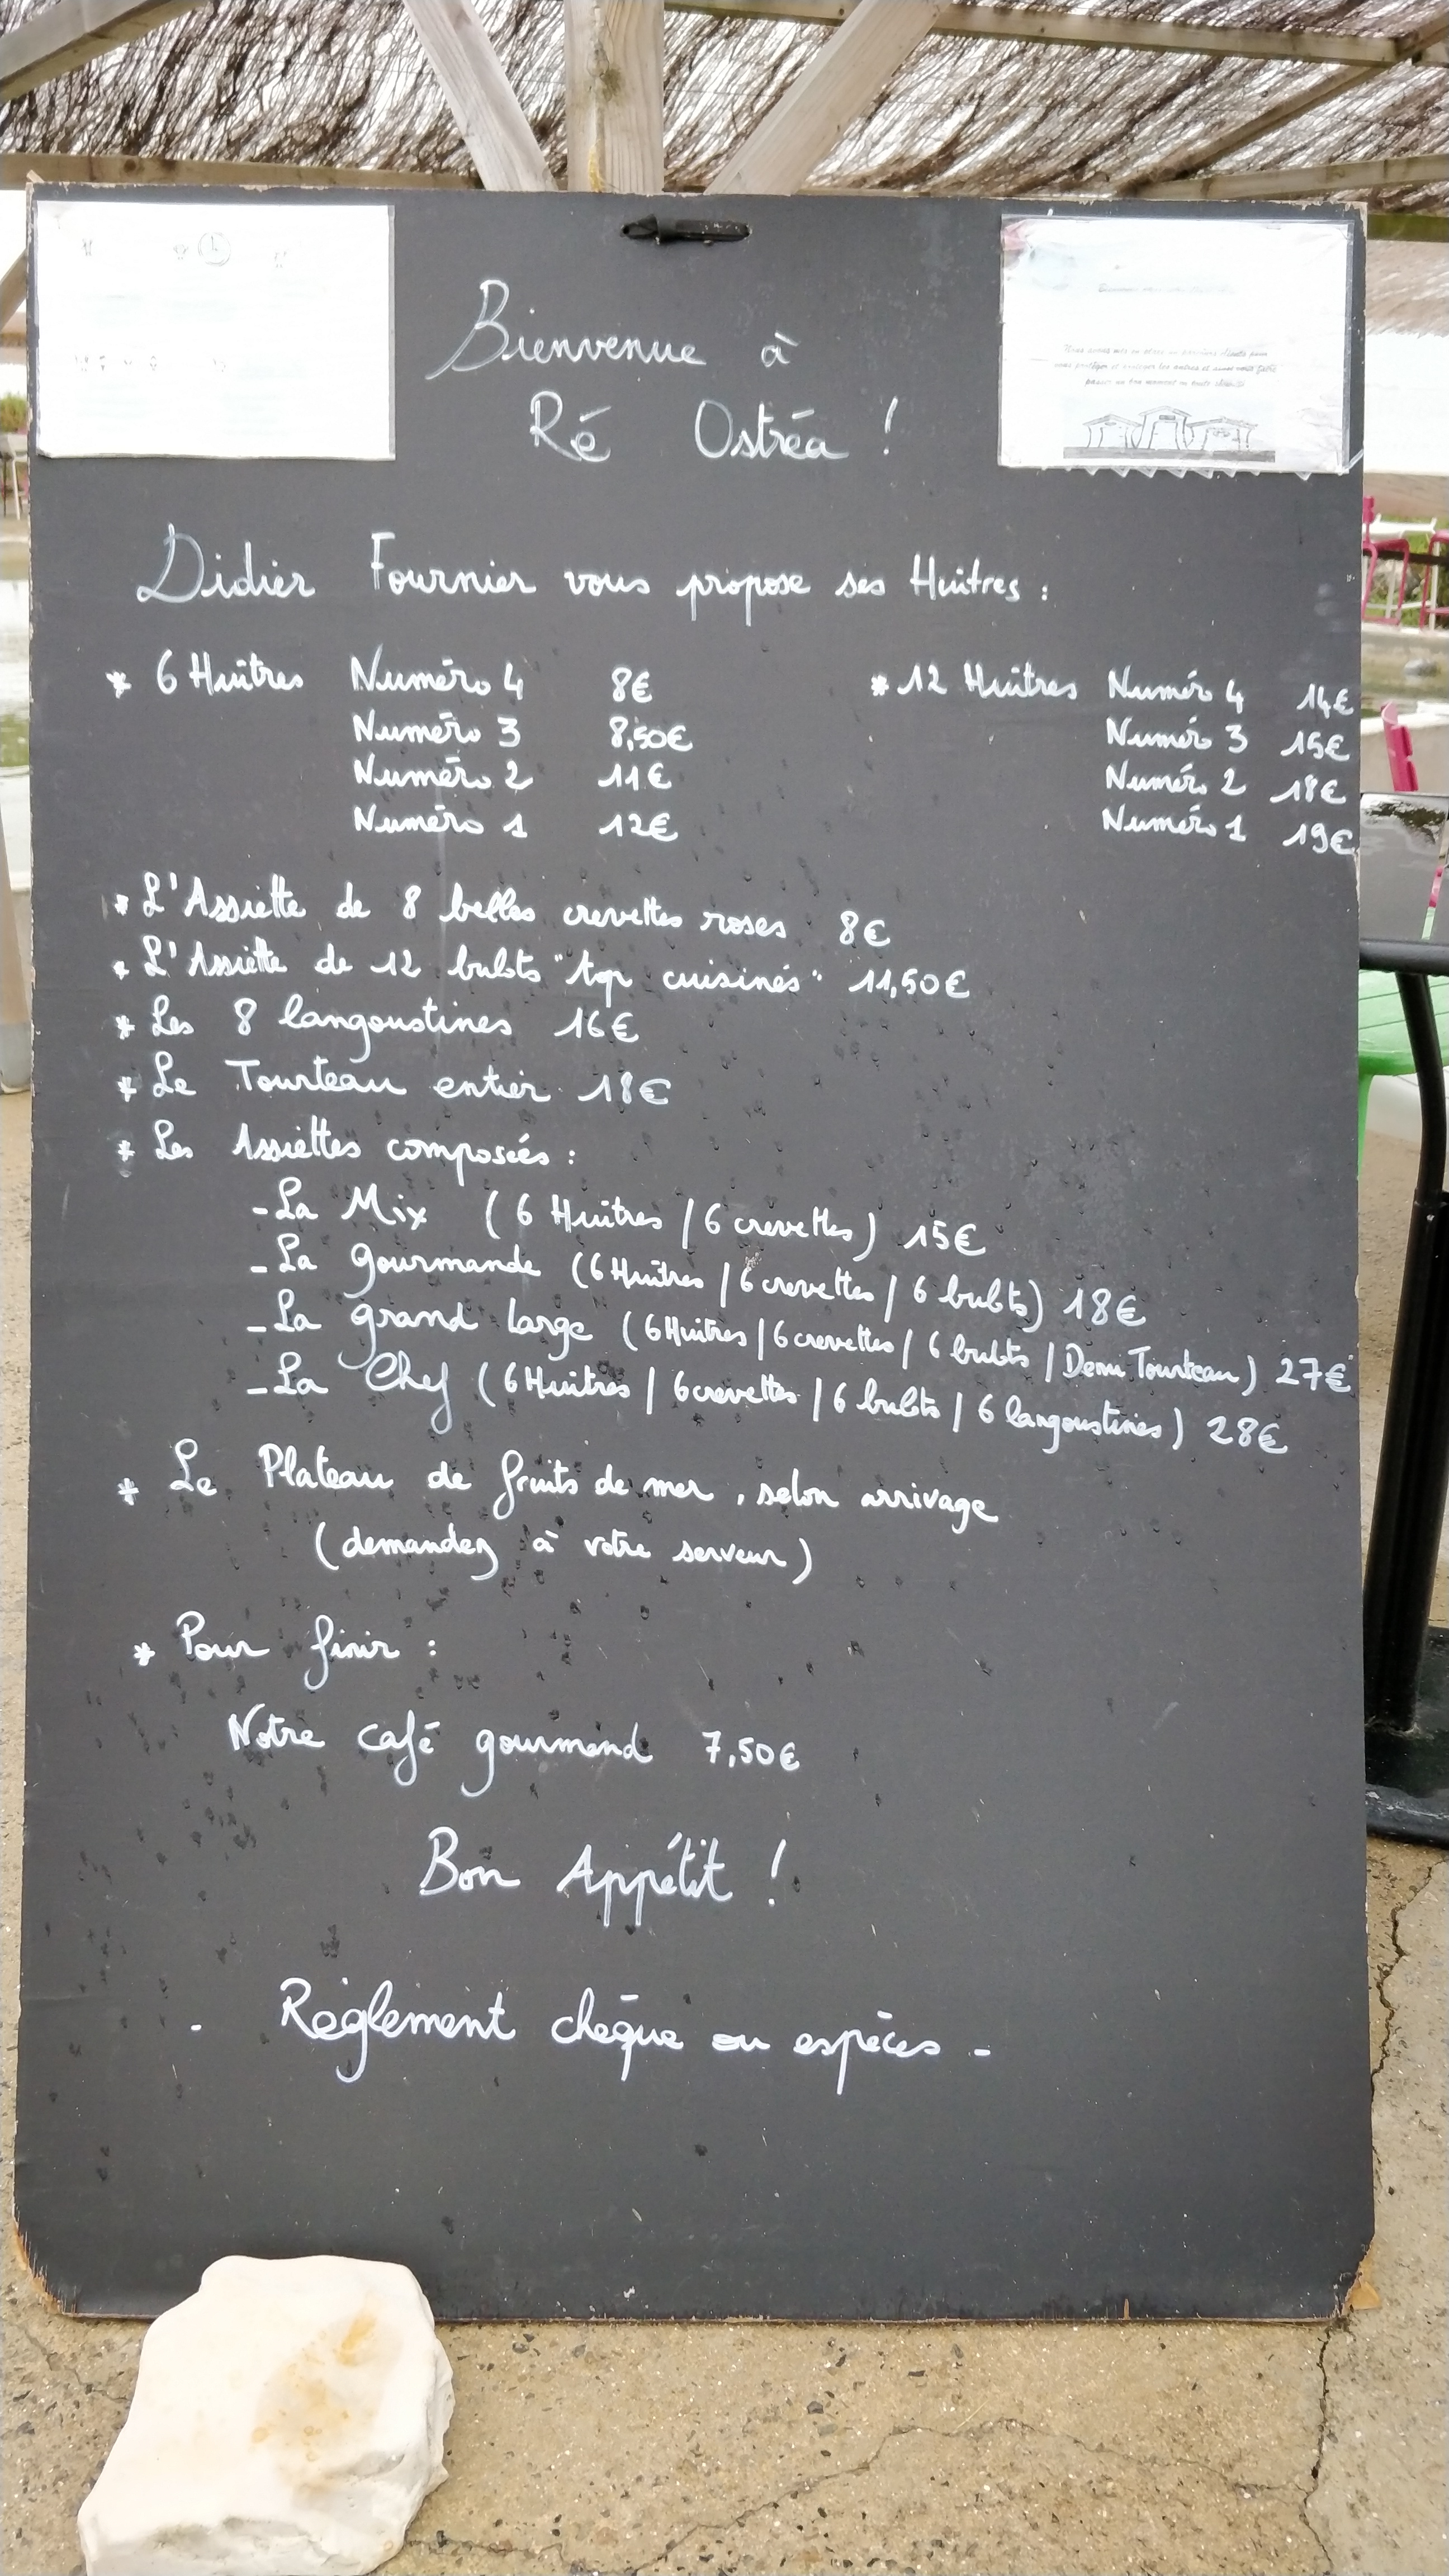 Bienvenue à
Ré Ostréa !
Nous avons mis en place
vous protéger et protéger les autres et ainsi vous faire
passer un bon moment en toute sécurité
Didier Fournier vous propose ses Huîtres :
* 6 Huîtres Numéro 4 8€
Numéro 3 8,50€
Numéro 2 11€
Numéro 1 12€
* 12 Huîtres Numéro 4 14€
Numéro 3 15€
Numéro 2 18€
Numéro 1 19€
* L'Assiette de 8 belles crevettes roses 8€
* L'Assiette de 12 bulots "top cuisinés" 11,50€
* Les 8 langoustines 16€
* Le Tourteau entier 18€
* Les Assiettes composées :
- La Mix (6 Huîtres / 6 crevettes) 15€
- La gourmande (6 Huîtres / 6 crevettes / 6 bulots) 18€
- La grand large (6 Huîtres / 6 crevettes / 6 bulots / Demi Tourteau) 27€
- La Chef (6 Huîtres / 6 crevettes / 6 bulots / 6 langoustines) 28€
* Le Plateau de fruits de mer, selon arrivage
(demandez à votre serveur)
* Pour finir :
Notre café gourmand 7,50€
Bon Appétit !
- Règlement chèque ou espèces -